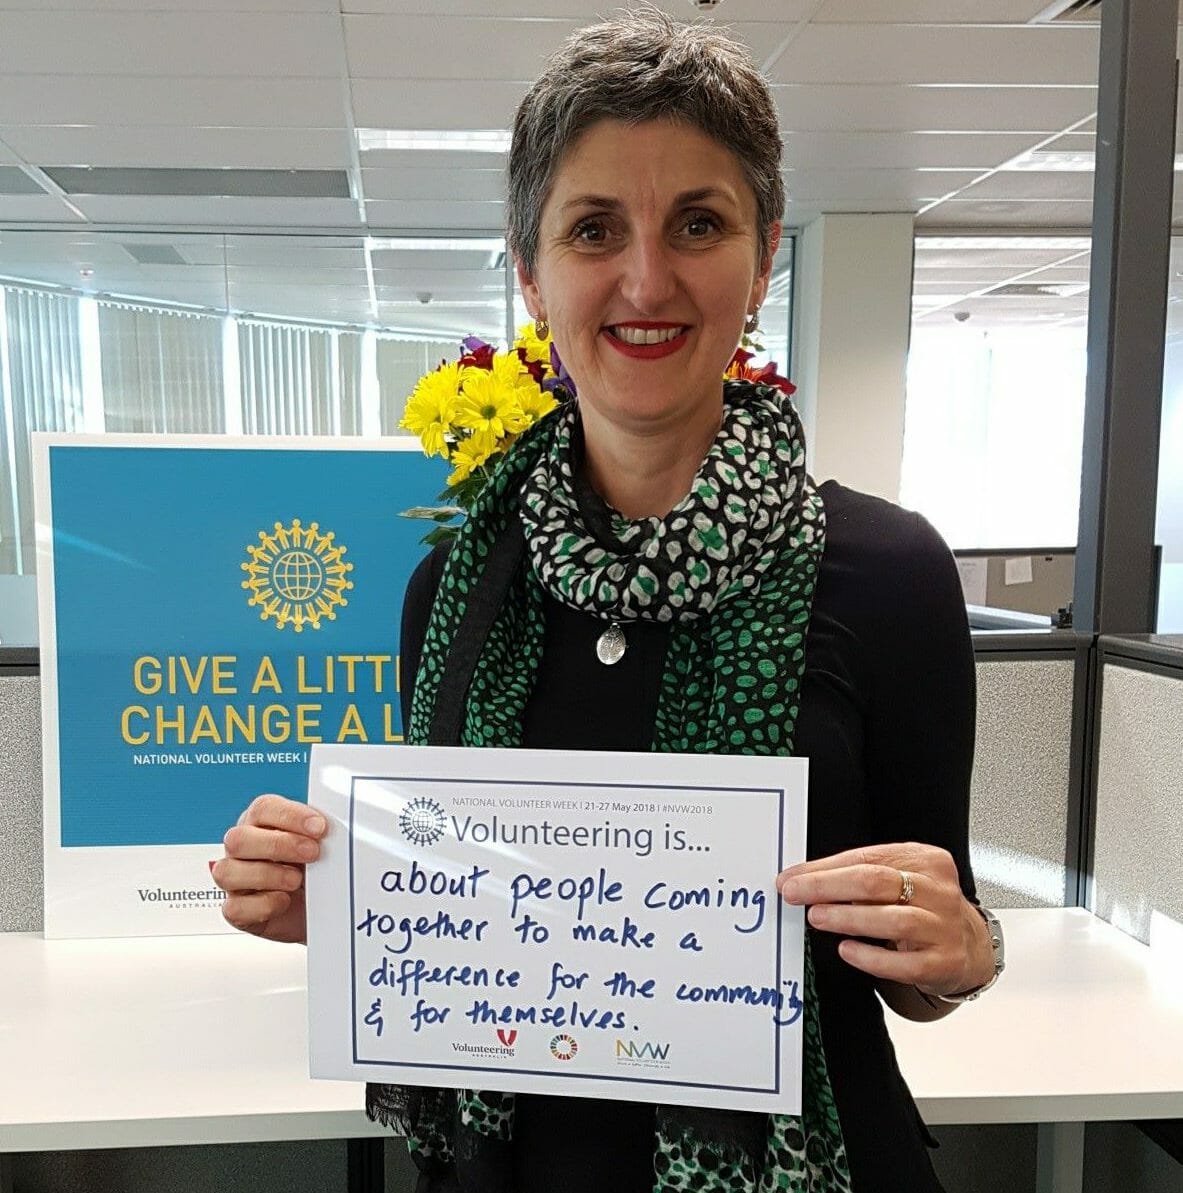 GIVE A LITTL
CHANGE A L
NATIONAL VOLUNTEER WEEK |
Volunteerin
AUSTRALIA
NATIONAL VOLUNTEER WEEK | 21-27 May 2018 | #NVW2018
Volunteering is...
about people coming
together to make a
difference for the community
& for themselves.
Volunteering
AUSTRALIA
NVW
NATIONAL VOLUNTEER WEEK